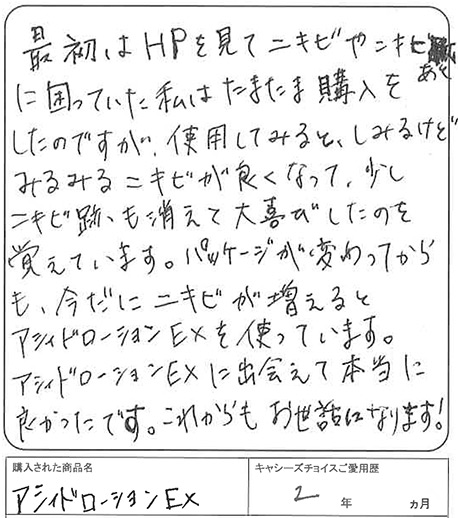 最初はHPを見てニキビやニキビあと
に困っていた私はたまたま購入を
したのですが、使用してみると、しみるけど
みるみるニキビが良くなって、少し
ニキビ跡も消えて大喜びしたのを
覚えています。パッケージが変わってから
も、今だにニキビが増えると
アシィドローションEXを使っています。
アシィドローションEXに出会えて本当に
良かったです。これからもお世話になります!
購入された商品名
キャシーズチョイスご愛用歴
アシィドローションEX
2年 ヵ月